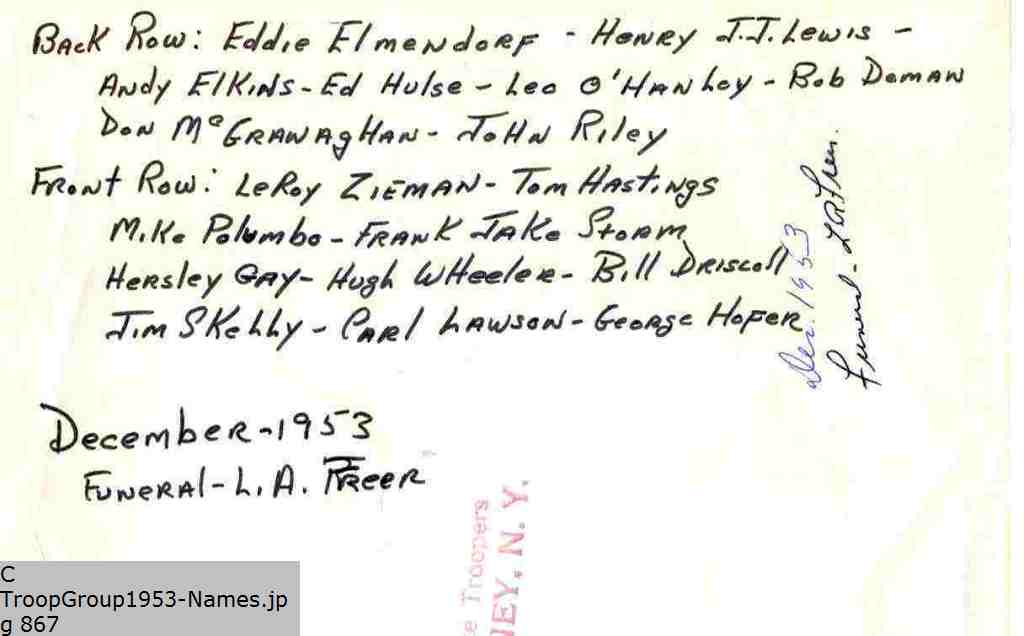 Back Row: Eddie Elmendorf - Henry J.J. Lewis -
Andy Elkins - Ed Hulse - Leo O'Hanley - Bob Deman
Don McGrawaghan - John Riley
Front Row: LeRoy Zieman - Tom Hastings
Mike Polumbo - Frank Jake Storm
Hersley Gay - Hugh Wheeler - Bill Driscoll
Jim Skelly - Carl Lawson - George Hofer
Dec. 1953
Funeral - L.A. Freer.
December - 1953
Funeral - L.A. Freer
e Troopers
NEY, N.Y.
C
TroopGroup1953-Names.jp
g 867